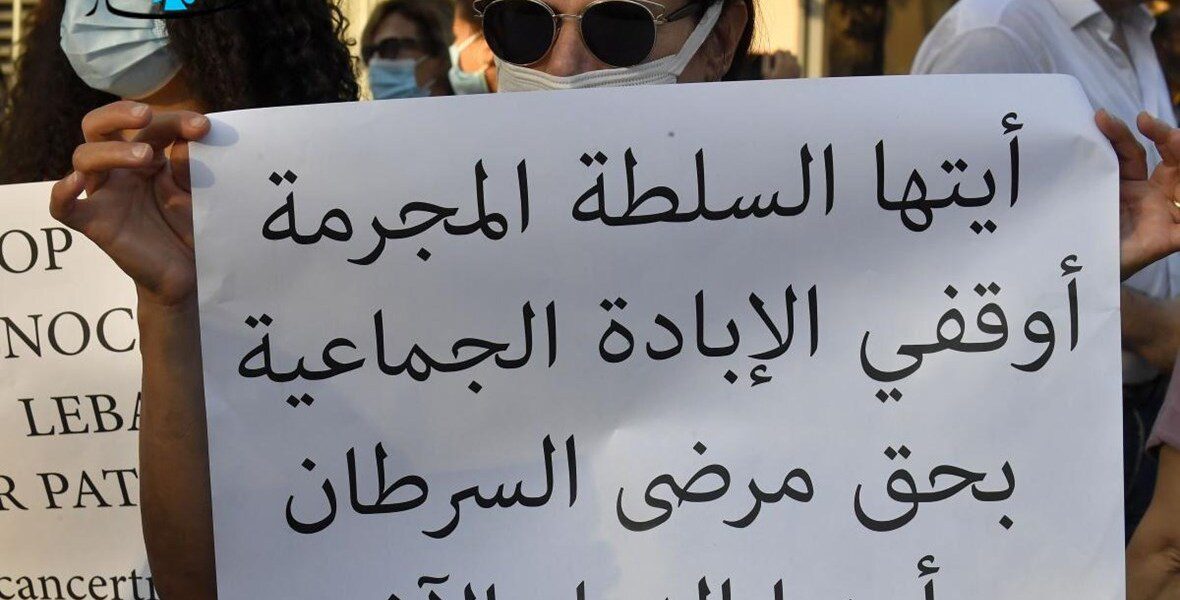 أيتها السلطة المجرمة
أوقفي الإبادة الجماعية
بحق مرضى السرطان
OP
NOC
LEBA
R PAT
cancert